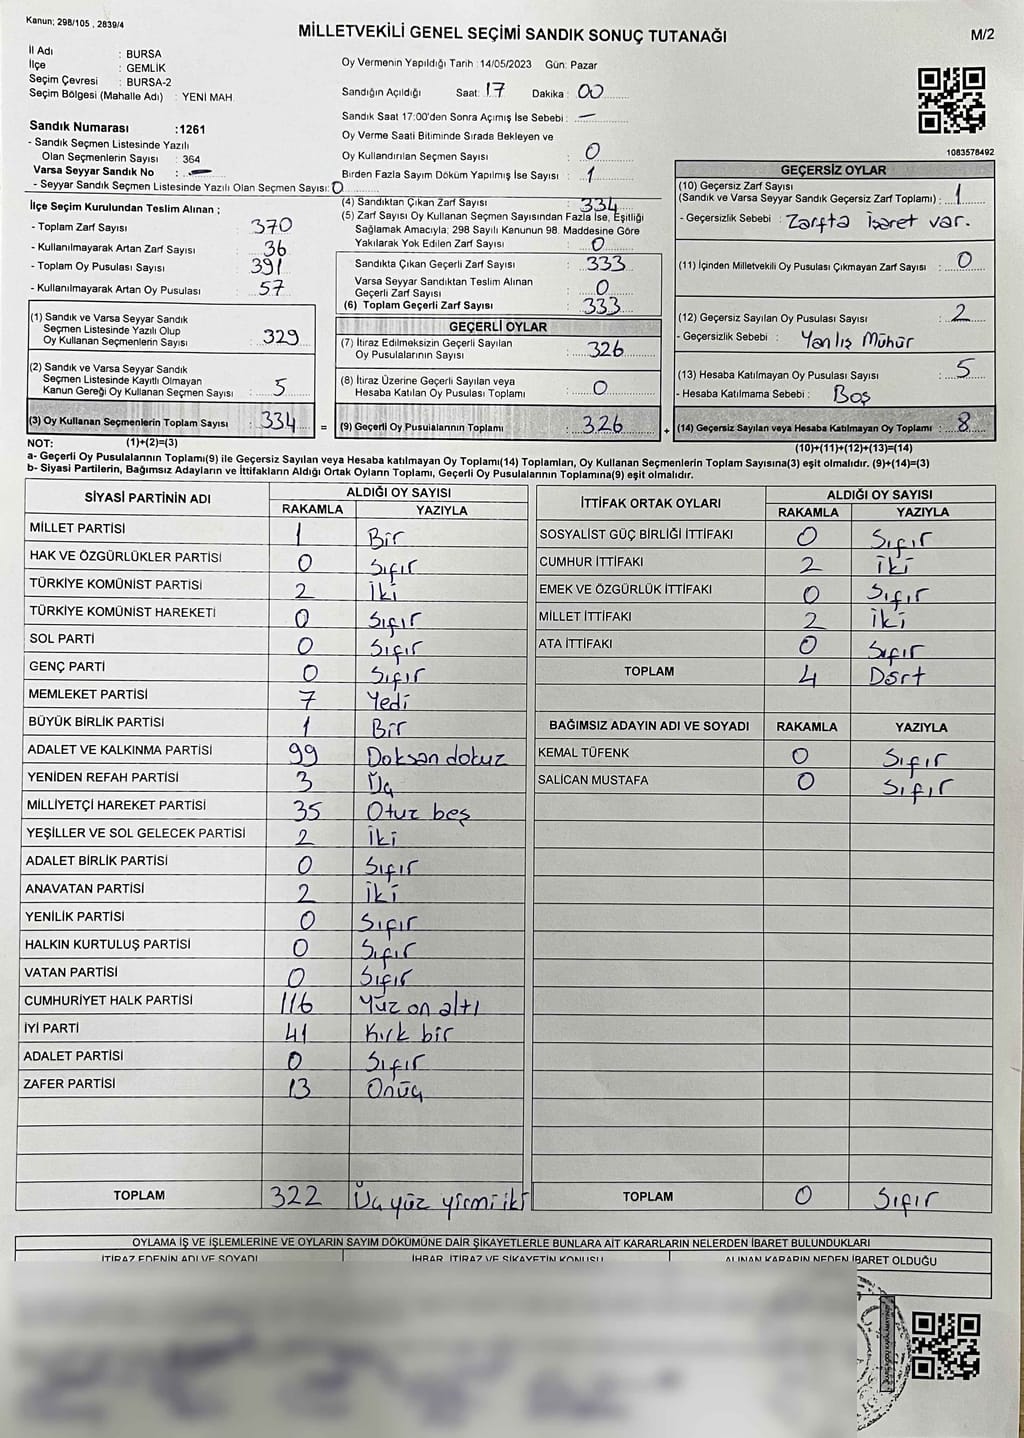 Kanun; 298/105 , 2839/4
MİLLETVEKİLİ GENEL SEÇİMİ SANDIK SONUÇ TUTANAĞI
M/2
İl Adı : BURSA
İlçe : GEMLİK
Seçim Çevresi : BURSA-2
Seçim Bölgesi (Mahalle Adı) : YENİ MAH
Oy Vermenin Yapıldığı Tarih : 14/05/2023 Gün: Pazar
Sandığın Açıldığı Saat: 17 Dakika : 00
Sandık Saat 17:00'den Sonra Açımış İse Sebebi : —
Oy Verme Saati Bitiminde Sırada Bekleyen ve
Oy Kullandırılan Seçmen Sayısı : 0
Birden Fazla Sayım Döküm Yapılmış İse Sayısı : 1
Sandık Numarası :1261
- Sandık Seçmen Listesinde Yazılı
Olan Seçmenlerin Sayısı : 364
Varsa Seyyar Sandık No : —
- Seyyar Sandık Seçmen Listesinde Yazılı Olan Seçmen Sayısı: 0
1083578492
İlçe Seçim Kurulundan Teslim Alınan ;
- Toplam Zarf Sayısı : 370
- Kullanılmayarak Artan Zarf Sayısı : 36
- Toplam Oy Pusulası Sayısı : 391
- Kullanılmayarak Artan Oy Pusulası : 57
(1) Sandık ve Varsa Seyyar Sandık
Seçmen Listesinde Yazılı Olup
Oy Kullanan Seçmenlerin Sayısı : 329
(2) Sandık ve Varsa Seyyar Sandık
Seçmen Listesinde Kayıtlı Olmayan
Kanun Gereği Oy Kullanan Seçmen Sayısı : 5
(3) Oy Kullanan Seçmenlerin Toplam Sayısı : 334
(4) Sandıktan Çıkan Zarf Sayısı : 334
(5) Zarf Sayısı Oy Kullanan Seçmen Sayısından Fazla İse, Eşitliği
Sağlamak Amacıyla; 298 Sayılı Kanunun 98. Maddesine Göre
Yakılarak Yok Edilen Zarf Sayısı : 0
Sandıkta Çıkan Geçerli Zarf Sayısı : 333
Varsa Seyyar Sandıktan Teslim Alınan
Geçerli Zarf Sayısı : 0
(6) Toplam Geçerli Zarf Sayısı : 333
GEÇERLİ OYLAR
(7) İtiraz Edilmeksizin Geçerli Sayılan
Oy Pusulalarının Sayısı : 326
(8) İtiraz Üzerine Geçerli Sayılan veya
Hesaba Katılan Oy Pusulası Toplamı : 0
= (9) Geçerli Oy Pusulalarının Toplamı : 326 +
GEÇERSİZ OYLAR
(10) Geçersiz Zarf Sayısı
(Sandık ve Varsa Seyyar Sandık Geçersiz Zarf Toplamı) : 1
- Geçersizlik Sebebi : Zarfta işaret var.
(11) İçinden Milletvekili Oy Pusulası Çıkmayan Zarf Sayısı : 0
(12) Geçersiz Sayılan Oy Pusulası Sayısı : 2
- Geçersizlik Sebebi : Yanlış Mühür
(13) Hesaba Katılmayan Oy Pusulası Sayısı : 5
- Hesaba Katılmama Sebebi : Boş
(14) Geçersiz Sayılan veya Hesaba Katılmayan Oy Toplamı : 8
NOT: (1)+(2)=(3) (10)+(11)+(12)+(13)=(14)
a- Geçerli Oy Pusulalarının Toplamı(9) ile Geçersiz Sayılan veya Hesaba katılmayan Oy Toplamı(14) Toplamları, Oy Kullanan Seçmenlerin Toplam Sayısına(3) eşit olmalıdır. (9)+(14)=(3)
b- Siyasi Partilerin, Bağımsız Adayların ve İttifakların Aldığı Ortak Oyların Toplamı, Geçerli Oy Pusulalarının Toplamına(9) eşit olmalıdır.
SİYASİ PARTİNİN ADI ALDIĞI OY SAYISI
RAKAMLA YAZIYLA
MİLLET PARTİSİ 1 Bir
HAK VE ÖZGÜRLÜKLER PARTİSİ 0 Sıfır
TÜRKİYE KOMÜNİST PARTİSİ 2 İki
TÜRKİYE KOMÜNİST HAREKETİ 0 Sıfır
SOL PARTİ 0 Sıfır
GENÇ PARTİ 0 Sıfır
MEMLEKET PARTİSİ 7 Yedi
BÜYÜK BİRLİK PARTİSİ 1 Bir
ADALET VE KALKINMA PARTİSİ 99 Doksan dokuz
YENİDEN REFAH PARTİSİ 3 Üç
MİLLİYETÇİ HAREKET PARTİSİ 35 Otuz beş
YEŞİLLER VE SOL GELECEK PARTİSİ 2 İki
ADALET BİRLİK PARTİSİ 0 Sıfır
ANAVATAN PARTİSİ 2 İki
YENİLİK PARTİSİ 0 Sıfır
HALKIN KURTULUŞ PARTİSİ 0 Sıfır
VATAN PARTİSİ 0 Sıfır
CUMHURİYET HALK PARTİSİ 116 Yüz on altı
İYİ PARTİ 41 Kırk bir
ADALET PARTİSİ 0 Sıfır
ZAFER PARTİSİ 13 Onüç
TOPLAM 322 Üç yüz yirmi iki
İTTİFAK ORTAK OYLARI ALDIĞI OY SAYISI
RAKAMLA YAZIYLA
SOSYALİST GÜÇ BİRLİĞİ İTTİFAKI 0 Sıfır
CUMHUR İTTİFAKI 2 İki
EMEK VE ÖZGÜRLÜK İTTİFAKI 0 Sıfır
MİLLET İTTİFAKI 2 İki
ATA İTTİFAKI 0 Sıfır
TOPLAM 4 Dört
BAĞIMSIZ ADAYIN ADI VE SOYADI RAKAMLA YAZIYLA
KEMAL TÜFENK 0 Sıfır
SALİCAN MUSTAFA 0 Sıfır
TOPLAM 0 Sıfır
OYLAMA İŞ VE İŞLEMLERİNE VE OYLARIN SAYIM DÖKÜMÜNE DAİR ŞİKAYETLERLE BUNLARA AİT KARARLARIN NELERDEN İBARET BULUNDUKLARI
İTİRAZ EDENİN ADI VE SOYADI İHBAR, İTİRAZ VE ŞİKAYETİN KONUSU ALINAN KARARIN NEDEN İBARET OLDUĞU